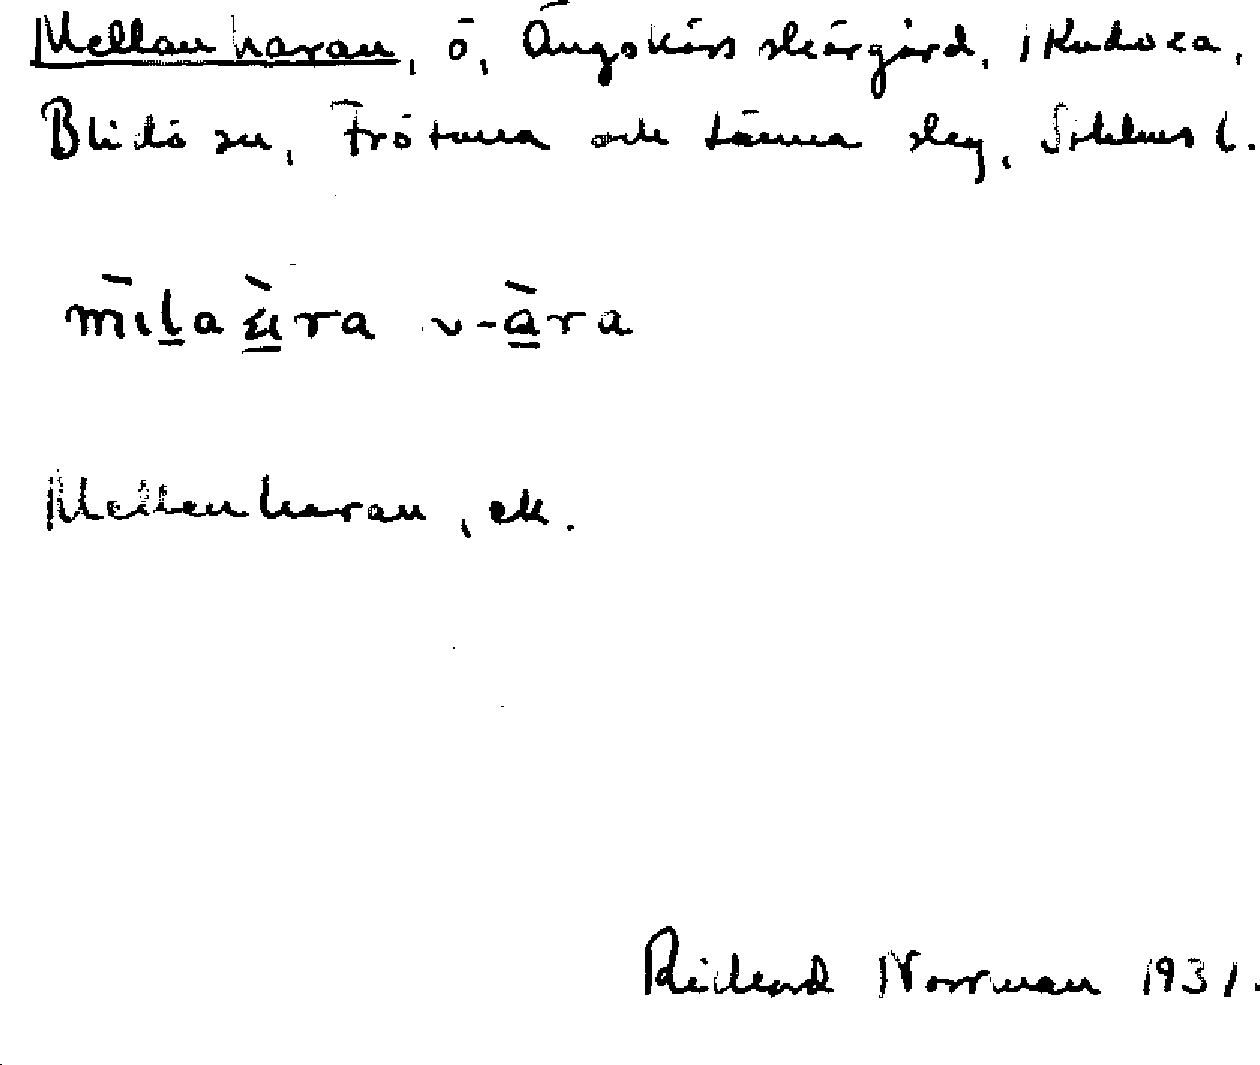 Mellanharan, ö, Ängskärs skärgård, i Kudoxa,
Blidö sn, Frötuna och Länna skg, Sthlms l.
mila ära v-àra
Mellanharan, ek.
Rickard Norrman 1931.